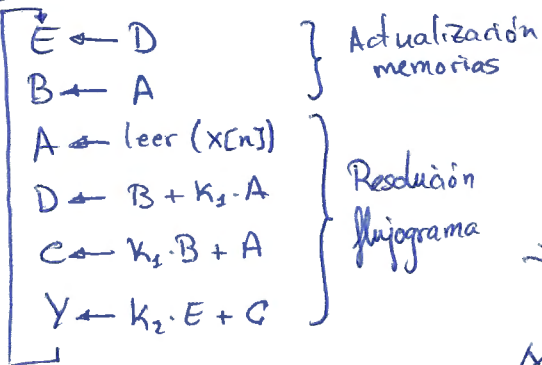 E ← D
B ← A
Actualización
memorias
A ← leer (x[n])
D ← B + K₁·A
C ← K₁·B + A
Y ← K₂·E + C
Resolución
flujograma